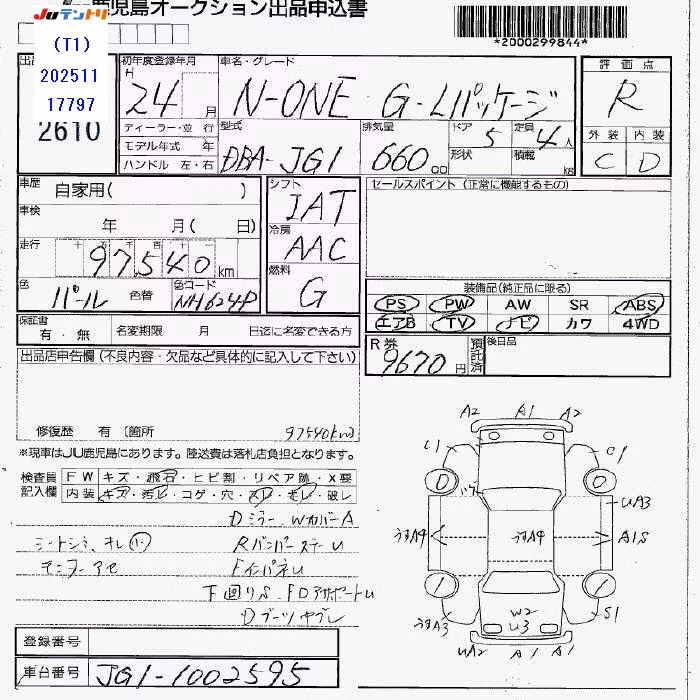 Juテントリ
鹿児島オークション出品申込書
*2000299844*
(T1)
202511
17797
2610
初年度登録年月
H
24 月
ディーラー・並 行
モデル年式 年
ハンドル 左・右
車名・グレード
N-ONE G・Lパッケージ
型式
DBA-JG1
排気量
660 cc
ドア 5
形状
定員 4人
積載 kg
評価点
R
外装 内装
C D
車歴 自家用( )
車検 年 月( 日)
走行
十 万 千 百 十 一
97,540 km
色 パール 色替
色コード NH624P
シフト
IAT
冷房
AAC
燃料
G
セールスポイント (正常に機能するもの)
装備品(純正品に限る)
PS PW AW SR ABS
エアB TV ナビ カワ 4WD
保証書
有・無
名変期限 月 日迄に名変できる方
R券
9670円
預託済
後日品
出品店申告欄 (不良内容・欠品など具体的に記入して下さい)
修復歴 有 〔箇所
97540km〕
※現車はJU鹿児島にあります。陸送費は落札店負担となります。
検査員
記入欄
FW キズ・飛石・ヒビ割・リペア跡・X要
内装 キズ・汚レ・コゲ・穴・スレ・モレ・破レ
Dミラー・WカバーA
シートシミ、オレ
RバンパーステーU
モニターアセ
FインパネU
下回りS
Dブーツヤブレ
A2 A1 A2
C1 C1
UA3
うすA4 うすA4 A1S
W2
U3
うすA3 S1
UA2 A1 A1
登録番号
車台番号 JG1-1002595